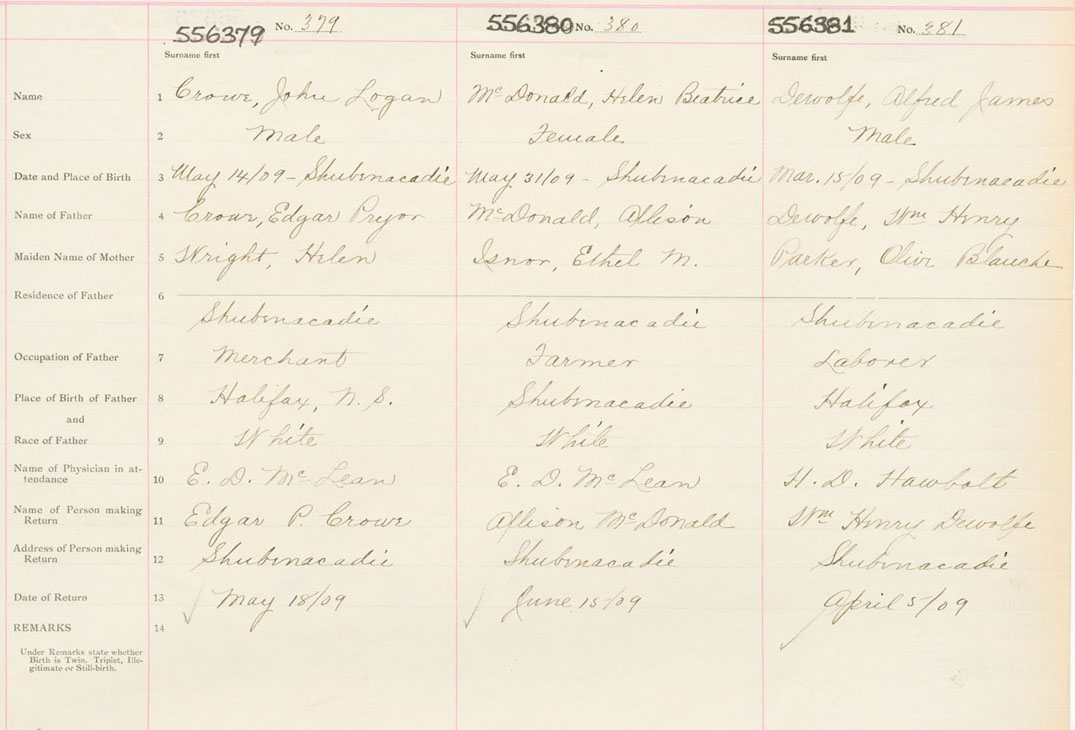 556379 No. 379 556380 No. 380 556381 No. 381
Surname first Surname first Surname first
Name 1 Crowe, John Logan McDonald, Helen Beatrice Dewolfe, Alfred James
Sex 2 Male Female Male
Date and Place of Birth 3 May 14/09 - Shubenacadie May 31/09 - Shubenacadie Mar. 15/09 - Shubenacadie
Name of Father 4 Crowe, Edgar Pryor McDonald, Allison Dewolfe, Wm Henry
Maiden Name of Mother 5 Wright, Helen Isnor, Ethel M. Parker, Olive Blanche
Residence of Father 6
Shubenacadie Shubenacadie Shubenacadie
Occupation of Father 7 Merchant Farmer Laborer
Place of Birth of Father 8 Halifax, N. S. Shubenacadie Halifax
and
Race of Father 9 White White White
Name of Physician in at-
tendance 10 E. D. McLean E. D. McLean H. D. Hawbolt
Name of Person making
Return 11 Edgar P. Crowe Allison McDonald Wm Henry Dewolfe
Address of Person making
Return 12 Shubenacadie Shubenacadie Shubenacadie
Date of Return 13 May 18/09 June 15/09 April 5/09
REMARKS 14
Under Remarks state whether
Birth is Twin, Triplet, Ille-
gitimate or Still-birth.